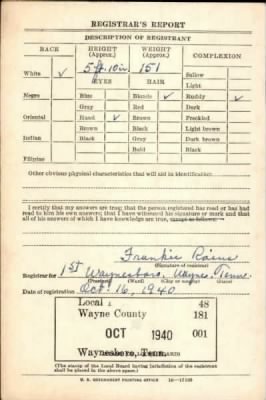 REGISTRAR'S REPORT
DESCRIPTION OF REGISTRANT
RACE HEIGHT (Approx.) WEIGHT (Approx.) COMPLEXION
White ✓ 5 ft. 10 in. 151 Sallow
EYES HAIR Light
Negro Blue Blonde ✓ Ruddy ✓
Gray Red Dark
Oriental Hazel ✓ Brown Freckled
Brown Black Light brown
Indian Black Gray Dark brown
Bald Black
Filipino
Other obvious physical characteristics that will aid in identification
I certify that my answers are true; that the person registered has read or has had
read to him his own answers; that I have witnessed his signature or mark and that
all of his answers of which I have knowledge are true, except as follows:
Frankie
(Signature of registrar)
Registrar for 1st Waynesboro, Wayne, Tenn.
(Precinct) (Ward) (City or county) (State)
Date of registration Oct. 16, 1940
Local 48
Wayne County 181
OCT 1940 001
Waynesboro, Tenn.
(The stamp of the Local Board having jurisdiction of the registrant
shall be placed in the above space.)
U. S. GOVERNMENT PRINTING OFFICE